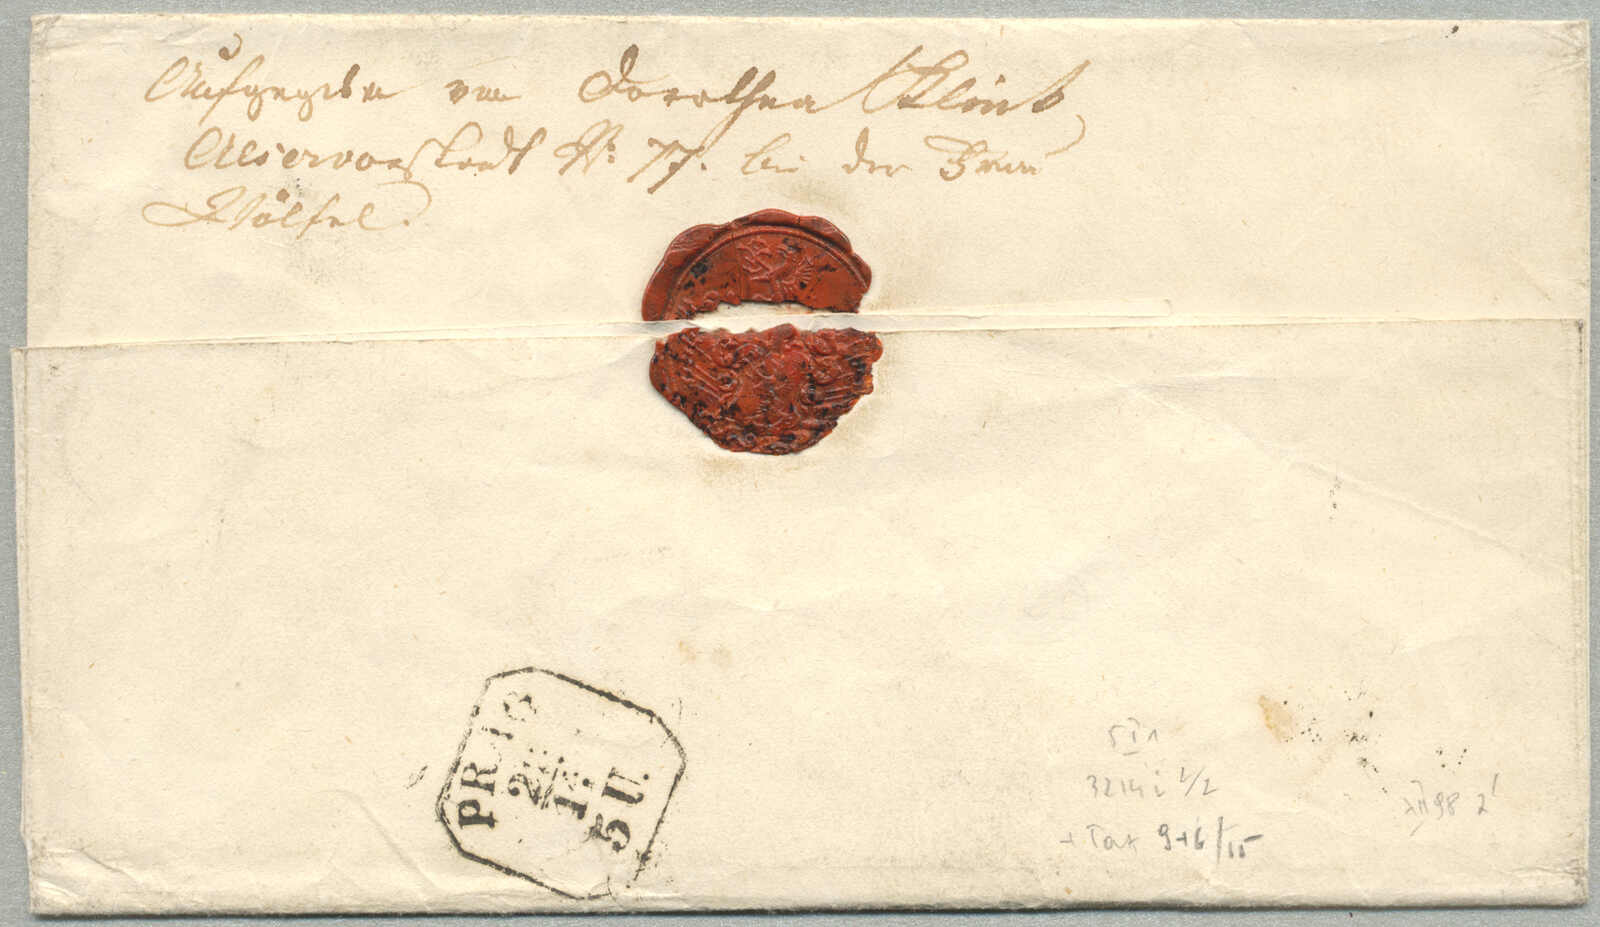 Aufgegeben von Dorothea Klint
Alservorstadt No: 77. bei der Frau
Wölfel.
PRAG
5 U.
5 I 1
+ Tax 9+6/15